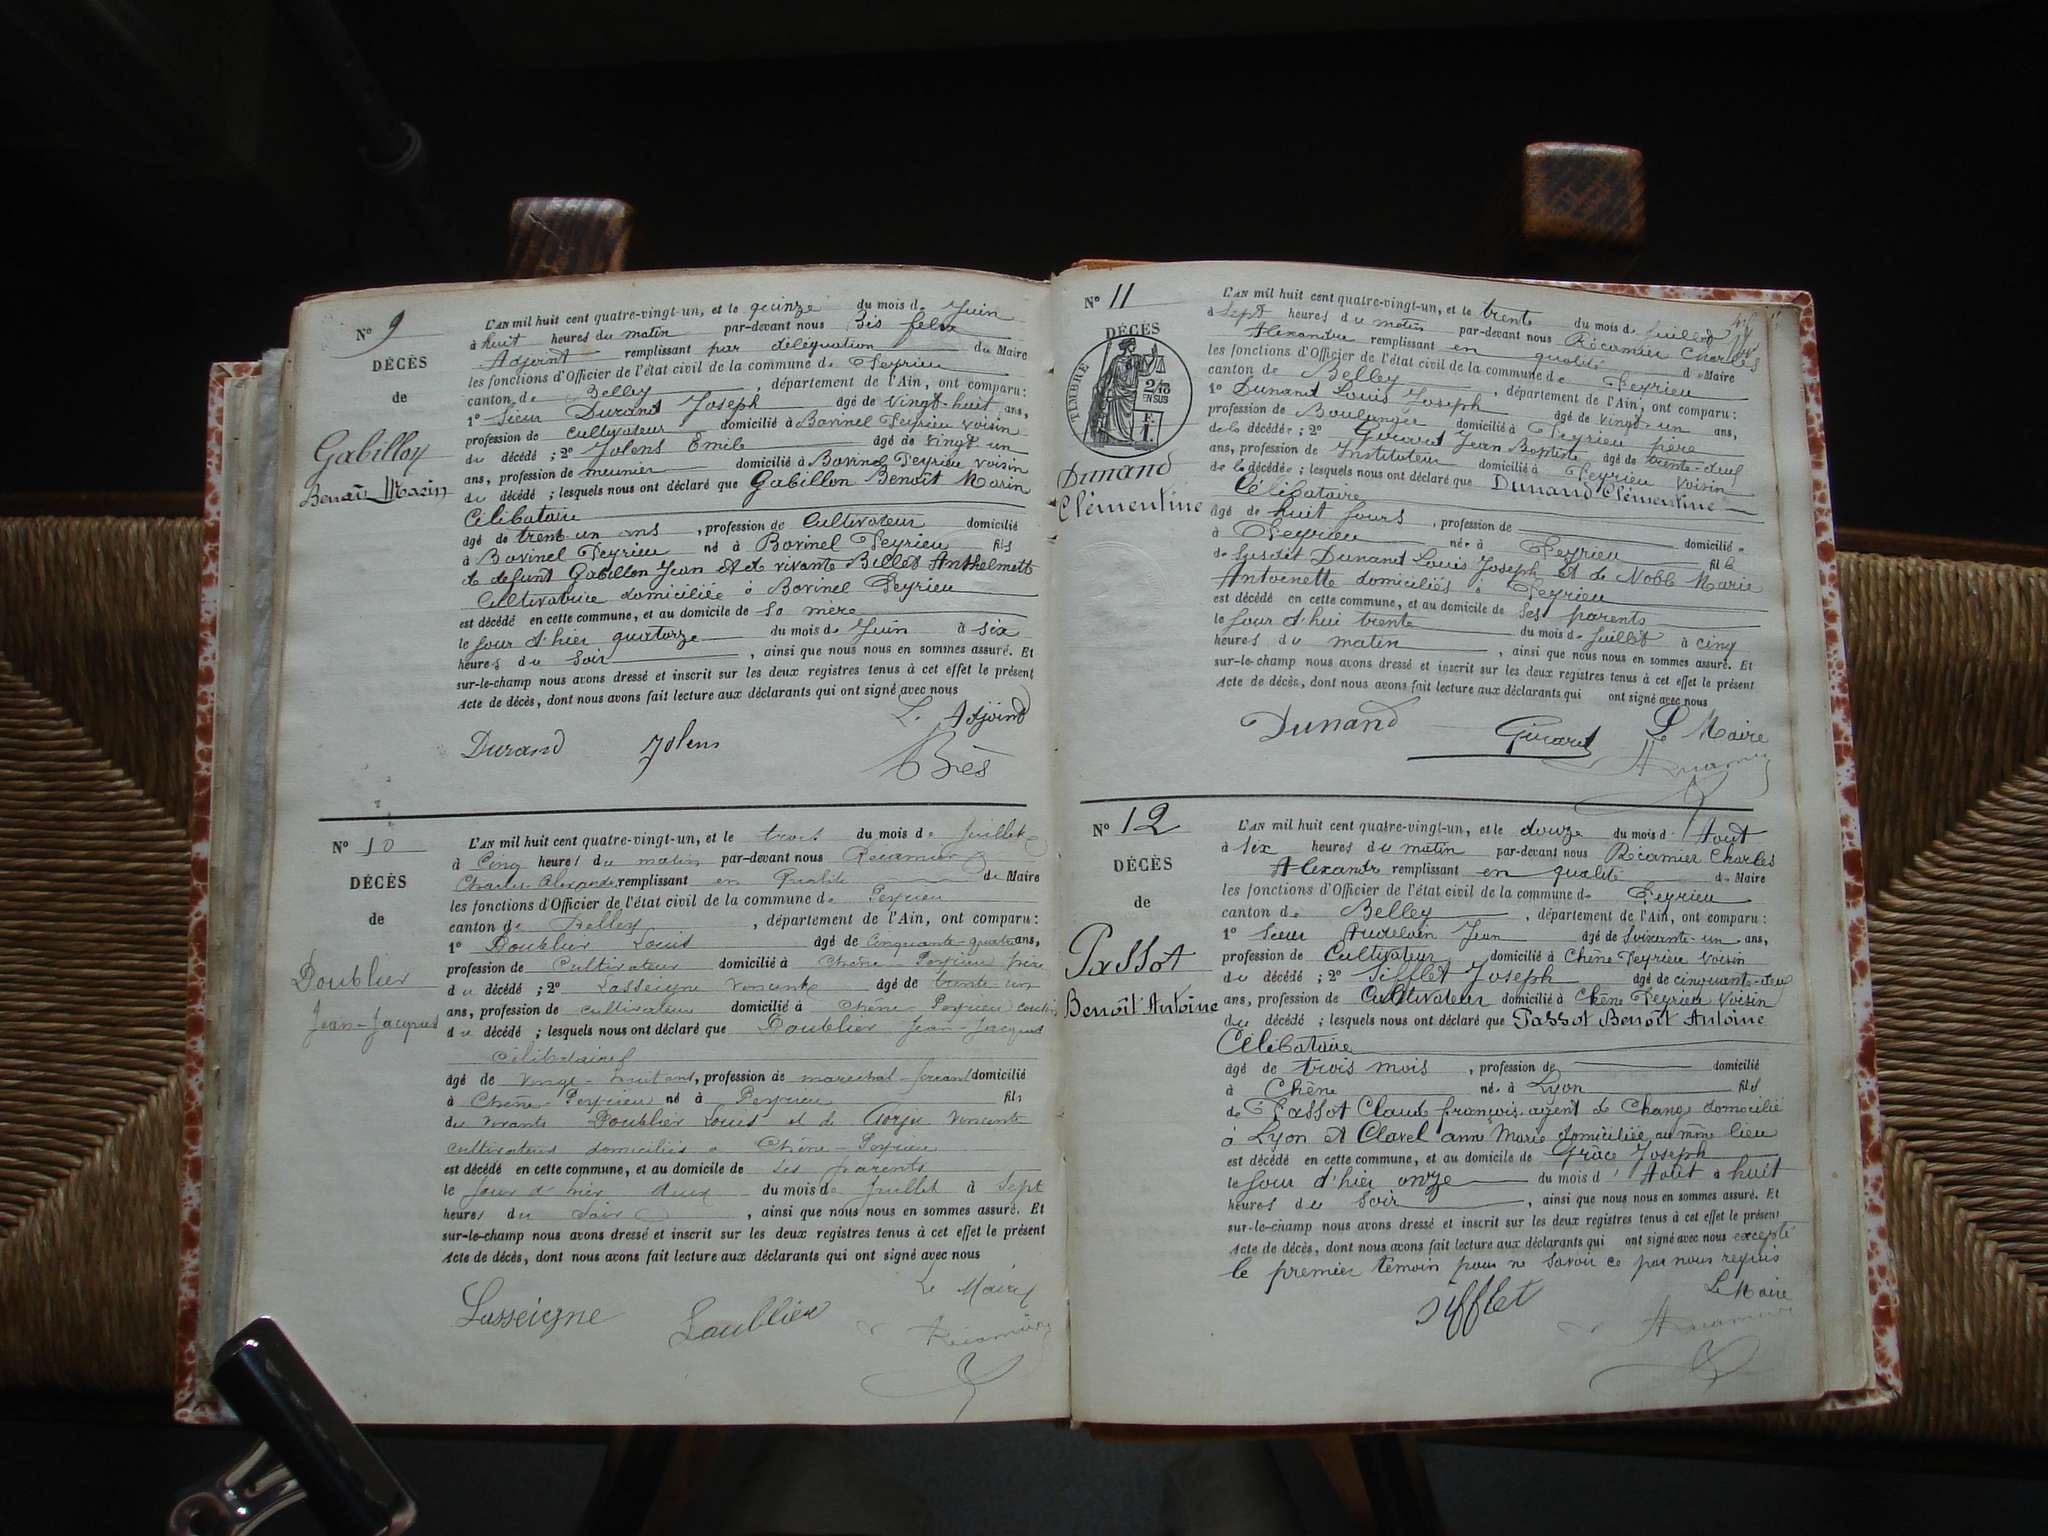 N° 9
DÉCÈS
de
Gabillon
Benoît Marin
L'AN mil huit cent quatre-vingt-un, et le quinze du mois de Juin
à huit heures du matin par-devant nous Bès felix
Adjoint remplissant par délégation du Maire
les fonctions d'Officier de l'état civil de la commune de Peyrieu
canton de Belley, département de l'Ain, ont comparu :
1° Sieur Durand Joseph âgé de vingt-huit ans,
profession de cultivateur domicilié à Bovinel Peyrieu voisin
du décédé ; 2° Jolens Emile âgé de vingt un
ans, profession de meunier domicilié à Bovinel Peyrieu voisin
du décédé ; lesquels nous ont déclaré que Gabillon Benoît Marin
Célibataire
âgé de trent-un ans, profession de Cultivateur domicilié
à Bovinel Peyrieu né à Bovinel Peyrieu fils
de defunt Gabillon Jean et de vivante Billet Anthelmette
Cultivatrice domiciliée à Bovinel Peyrieu
est décédé en cette commune, et au domicile de sa mère
le jour d'hier quatorze du mois de Juin à six
heures du soir, ainsi que nous nous en sommes assuré. Et
sur-le-champ nous avons dressé et inscrit sur les deux registres tenus à cet effet le présent
Acte de décès, dont nous avons fait lecture aux déclarants qui ont signé avec nous
L. Adjoint
Durand Jolens Bès
N° 10
DÉCÈS
de
Doublier
Jean-Jacques
L'AN mil huit cent quatre-vingt-un, et le trois du mois de Juillet
à Cinq heures du matin par-devant nous Récamier
Charles Alexandre remplissant en Qualité de Maire
les fonctions d'Officier de l'état civil de la commune de Peyrieu
canton de Belley, département de l'Ain, ont comparu :
1° Doublier Louis âgé de Cinquante-quatre ans,
profession de Cultivateur domicilié à Chêne-Peyrieu père
du décédé ; 2° Lasseigne Vincent âgé de trente un
ans, profession de cultivateur domicilié à Chêne-Peyrieu cousin
du décédé ; lesquels nous ont déclaré que Doublier Jean-Jacques
Célibataire
âgé de vingt-huit ans, profession de marechal-ferrant domicilié
à Chêne-Peyrieu né à Peyrieu fils
des vivants Doublier Louis et de Vincente
cultivateurs domiciliés à Chêne-Peyrieu
est décédé en cette commune, et au domicile de ses parents
le jour d'hier deux du mois de Juillet à sept
heures du soir, ainsi que nous nous en sommes assuré. Et
sur-le-champ nous avons dressé et inscrit sur les deux registres tenus à cet effet le présent
Acte de décès, dont nous avons fait lecture aux déclarants qui ont signé avec nous
Le Maire
Lasseigne Doublier Récamier
N° 11
DÉCÈS
TIMBRE
2/10 EN SUS
F. 1.
Dunand
Clémentine
L'AN mil huit cent quatre-vingt-un, et le trente du mois de Juillet
à Sept heures du matin par-devant nous Récamier Charles
Alexandre remplissant en qualité de Maire
les fonctions d'Officier de l'état civil de la commune de Peyrieu
canton de Belley, département de l'Ain, ont comparu :
1° Dunand Louis Joseph âgé de vingt-un ans,
profession de Boulanger domicilié à Peyrieu père
de la décédée ; 2° Girard Jean Baptiste âgé de trente-deux
ans, profession de Instituteur domicilié à Peyrieu voisin
de la décédée ; lesquels nous ont déclaré que Dunand Clémentine
Célibataire
âgé de huit Jours, profession de domicilié e
à Peyrieu née à Peyrieu fille
de susdit Dunand Louis Joseph et de Noble Marie
Antoinette domiciliés à Peyrieu
est décédé en cette commune, et au domicile de ses parents
le jour d'hui trente du mois de Juillet à cinq
heures du matin, ainsi que nous nous en sommes assuré. Et
sur-le-champ nous avons dressé et inscrit sur les deux registres tenus à cet effet le présent
Acte de décès, dont nous avons fait lecture aux déclarants qui ont signé avec nous
Le Maire
Dunand Girard Récamier
N° 12
DÉCÈS
de
Passot
Benoît Antoine
L'AN mil huit cent quatre-vingt-un, et le douze du mois d' Aout
à six heures du matin par-devant nous Récamier Charles
Alexandre remplissant en qualité de Maire
les fonctions d'Officier de l'état civil de la commune de Peyrieu
canton de Belley, département de l'Ain, ont comparu :
1° Sieur Jean âgé de Soixante-un ans,
profession de Cultivateur domicilié à Chêne Peyrieu Voisin
du décédé ; 2° Sifflet Joseph âgé de cinquante-deux
ans, profession de Cultivateur domicilié à Chêne Peyrieu Voisin
du décédé ; lesquels nous ont déclaré que Passot Benoît Antoine
Célibataire
âgé de trois mois, profession de domicilié
à Chêne né à Lyon fils
de Passot Claude françois agent de Change domicilié
à Lyon et Clavel anne Marie domiciliée au même lieu
est décédé en cette commune, et au domicile de Grâce Joseph
le Jour d'hier onze du mois d' Aout à huit
heures du soir, ainsi que nous nous en sommes assuré. Et
sur-le-champ nous avons dressé et inscrit sur les deux registres tenus à cet effet le présent
Acte de décès, dont nous avons fait lecture aux déclarants qui ont signé avec nous excepté
le premier témoin pour ne savoir ce par nous requis
Le Maire
Sifflet Récamier